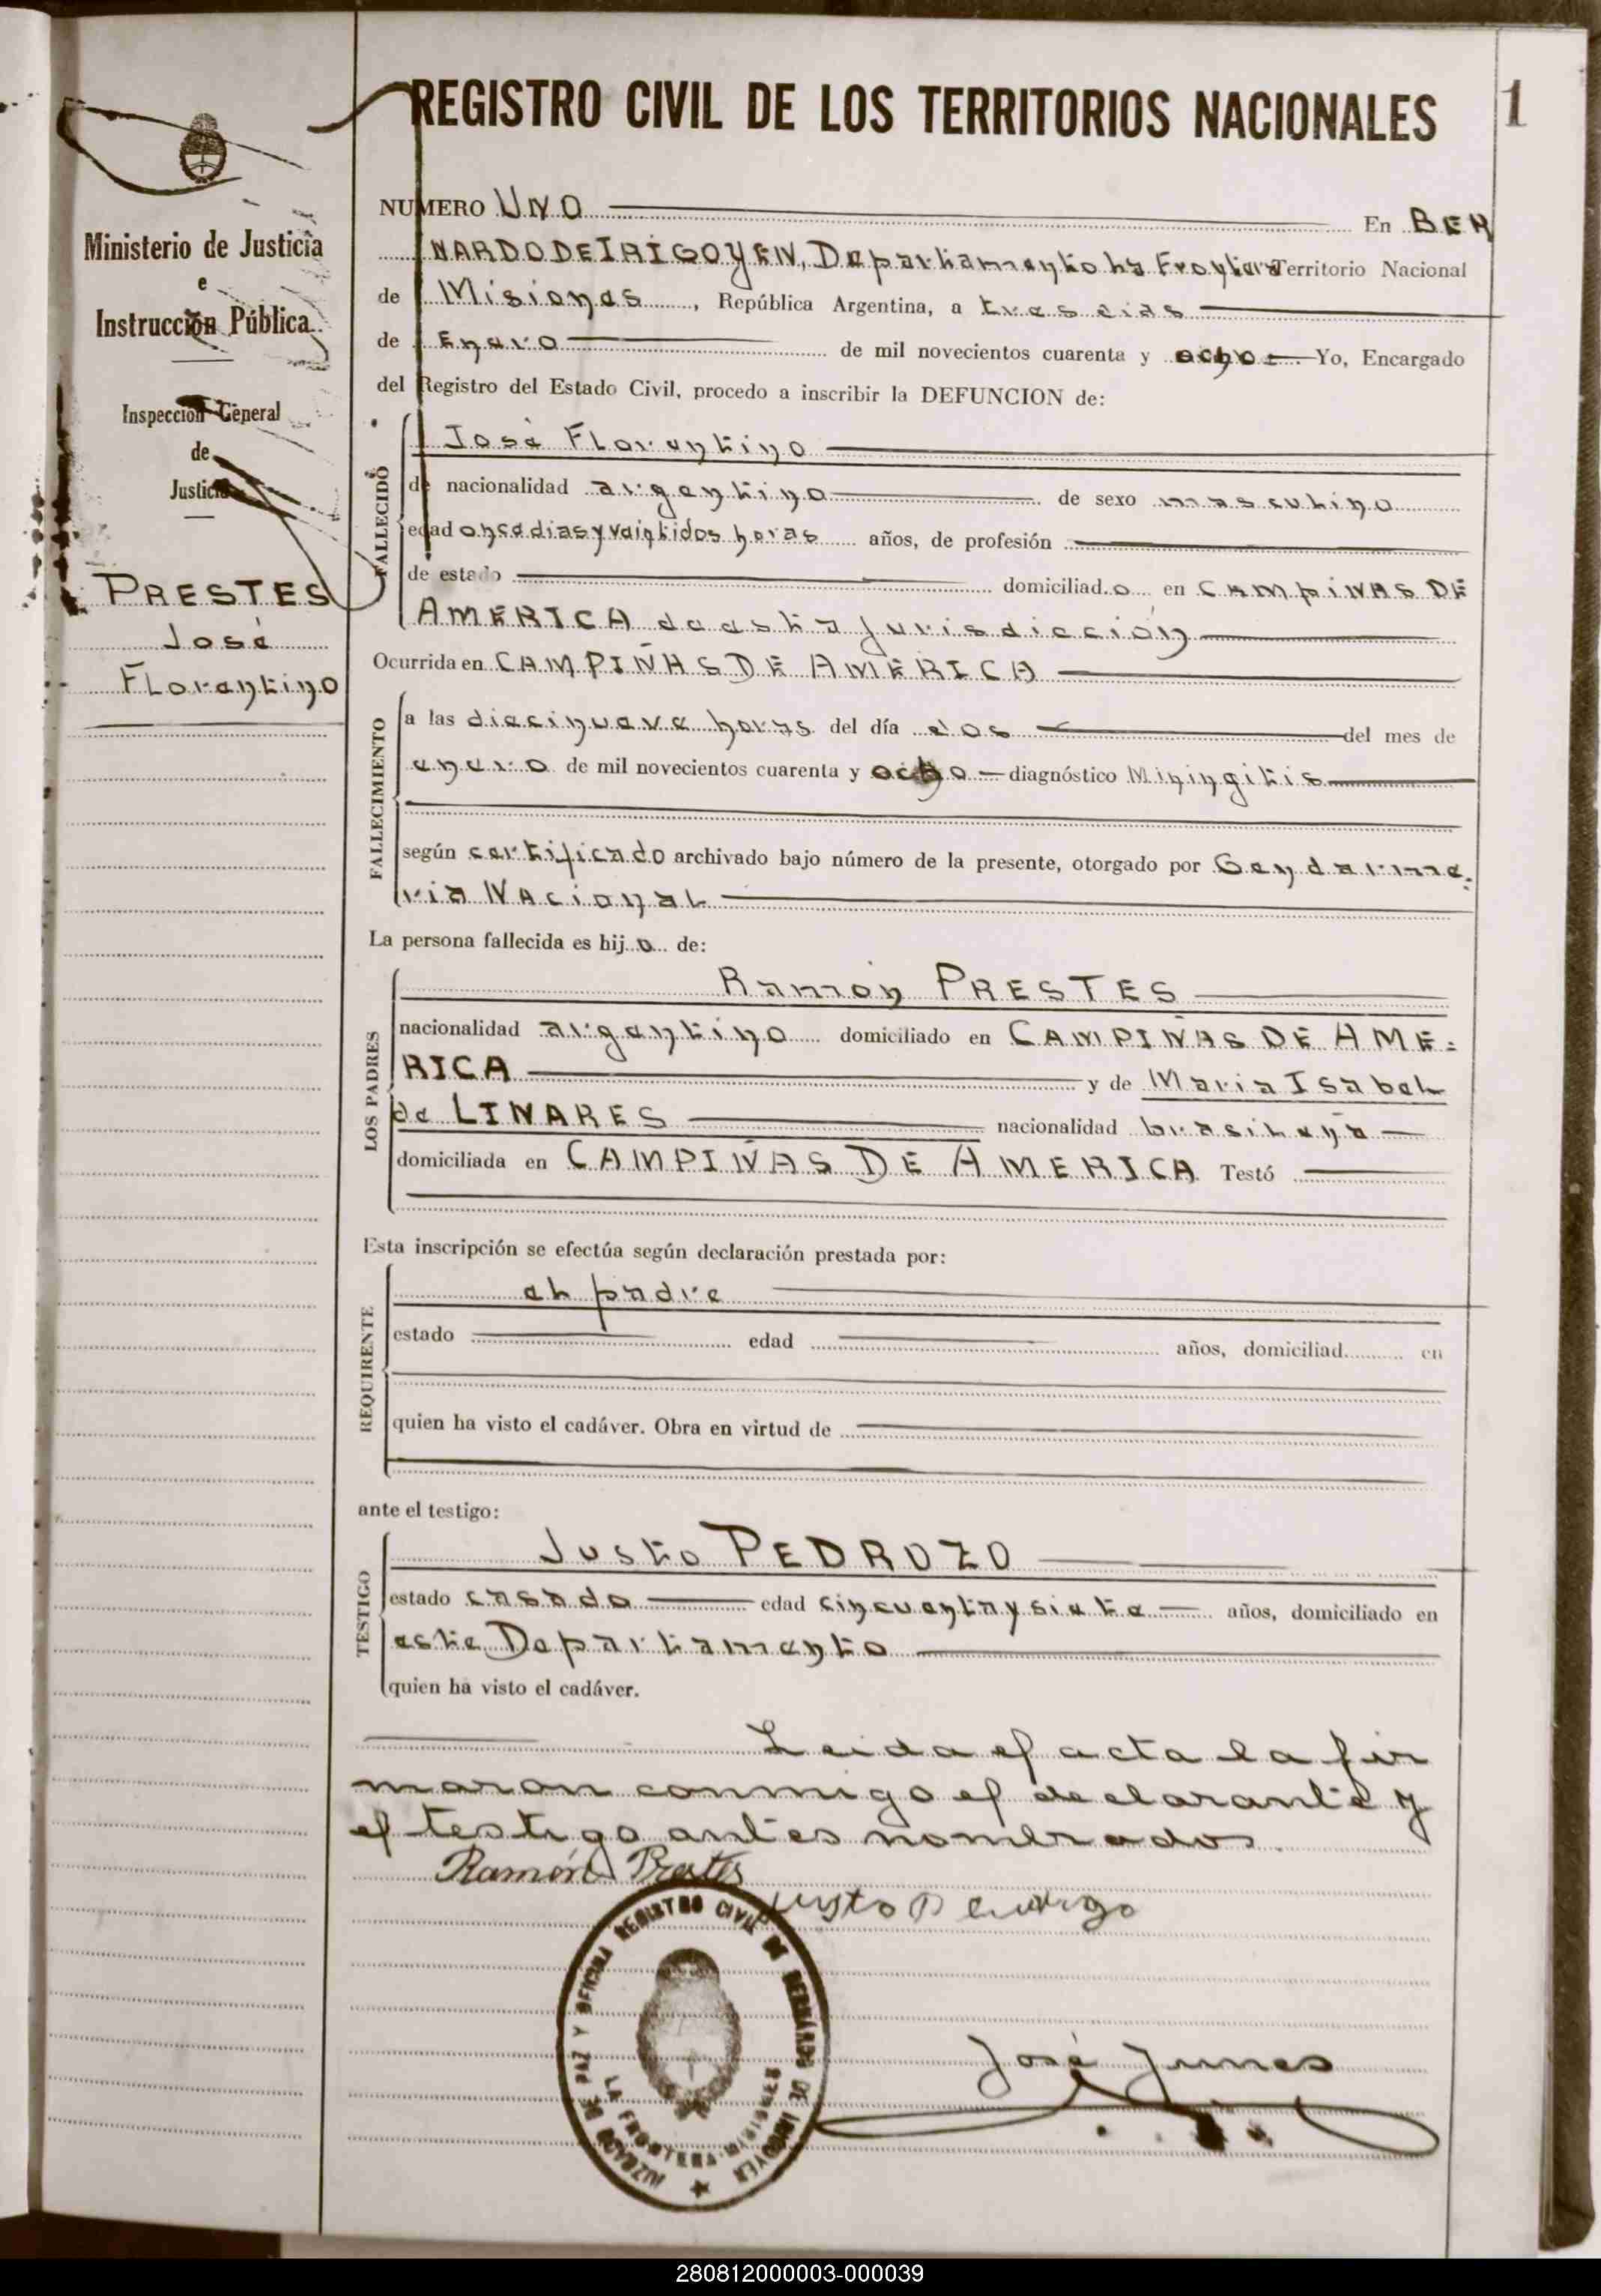 REGISTRO CIVIL DE LOS TERRITORIOS NACIONALES
1
Ministerio de Justicia
e
Instrucción Pública
Inspección General
de
Justicia
PRESTES
José
Florentino
NUMERO UNO En BER
NARDO DE IRIGOYEN, Departiamento La Frontera Territorio Nacional
de Misiones, República Argentina, a tres dias
de Enero de mil novecientos cuarenta y ocho Yo, Encargado
del Registro del Estado Civil, procedo a inscribir la DEFUNCION de:
FALLECIDO
José Florentino
de nacionalidad argentino de sexo masculino
edad once dias y veintidos horas años, de profesión
de estado domiciliado en CAMPIÑAS DE
AMERICA de esta jurisdicción
Ocurrida en CAMPIÑAS DE AMERICA
FALLECIMIENTO
a las diecinueve horas del día dos del mes de
enero de mil novecientos cuarenta y ocho diagnóstico Miningitis
según certificado archivado bajo número de la presente, otorgado por Gendarme-
ria Nacional
La persona fallecida es hijo de:
LOS PADRES
Ramón PRESTES
nacionalidad argentino domiciliado en CAMPIÑAS DE AME=
RICA y de Maria Isabel
de LINARES nacionalidad brasileña
domiciliada en CAMPIÑAS DE AMERICA Testó
Esta inscripción se efectúa según declaración prestada por:
REQUIRENTE
el padre
estado edad años, domiciliad en
quien ha visto el cadáver. Obra en virtud de
ante el testigo:
TESTIGO
Justo PEDROZO
estado casado edad cincuenta y siete años, domiciliado en
este Departamento
quien ha visto el cadáver.
Leida el acta la fir
maron conmigo el declarante y
el testigo antes nombrados.
Ramón Prestes
Justo
JUZGADO DE PAZ Y OFICINA REGISTRO CIVIL DE BERNARDO DE IRIGOYEN
LA FRONTERA-MISIONES
José
280812000003-000039